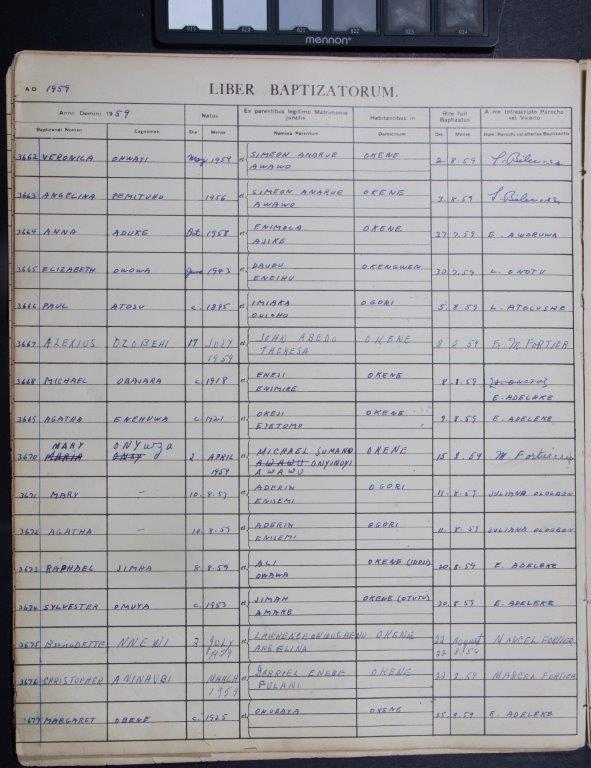 019 020 021 022 023 024
mennon
A D 1959
LIBER BAPTIZATORUM.
Anno Domini 1959
Natus
Ex parentibus legitimo Matrimonio junctis
Habitantibus in
Rite fuit Baptizatus
A me infrascripto Parocho vel Vicario
Baptizandi Nomen Cognomen Die Mense Nomina Parentum Domicilium Die Mense Nom. Parochi vel alterius Baptizantis
3662 VERONICA OHWAYI May 1959 et SIMEON ANARUE OKENE 2. 8. 59
AWAWO
3663 ANGELINA PEMITUHO 1956 et SIMEON ANARUE OKENE 2. 8. 59
AWAWO
3664 ANNA ADUKE Oct 1958 et ENIMOLA OKENE 27 7. 59 E. AWORUWA
AJIKE
3665 ELIZABETH OWOWA June 1943 et DAUDU OKENGWEN 30 7. 59 L. ONOTU
ENEIHU
3666 PAUL ATOSU c. 1895 et IMIAKA OGORI 5. 8. 59
3667 ALEXIUS OZOBEHI 17 JULY et JOHN ABEDO OKENE 8 59 Fr M FORTIER
1959 THERESA
3668 MICHAEL OBAJARA c. 1918 et ENEJI OKENE 8 8. 59
ENIMIRE E. ADELEKE
3669 AGATHA ENEHUWA c. 1921 et OKEJI OKENE 9. 8. 59 E. ADELEKE
EYETOMO
MARY ONYWZA
3670 MARIA 2 APRIL et MICHAEL SUMANO OKENE 15 8. 59 M Fortier
1959 AWAWU ONYINOYI
AWAWU
3671 MARY - 10. 8. 59 et ADERIN OGORI 11. 8. 59 JULIANA OLOGBON
ENISEMI
3672 AGATHA - 10. 8. 59 et ADERIN OGORI 11. 8. 59 JULIANA OLOGBON
ENISEMI
3673 RAPHAEL JIMHA 8. 8. 59 et ALI OKENE (IDOJI) 20. 8. 59 E. ADELEKE
OWAWA
3674 SYLVESTER OMUYA c. 1953 et JIMAH OKENE (OTUTU) 20. 8. 59 E. ADELEKE
AMARE
3675 Bernadette NNEWI 3 JULY et LAWRENCE OKENE 22 August MARCEL FORTIER
1959 ANGELINA 22 8. 59
3676 CHRISTOPHER ANINAUBI MARCH et GABRIEL ENEBE OKENE 23 8. 59 MARCEL FORTIER
1959 FULANI
3677 MARGARET OBENE c. 1925 et ONOBAYA OKENE 25. 8. 59 E. ADELEKE